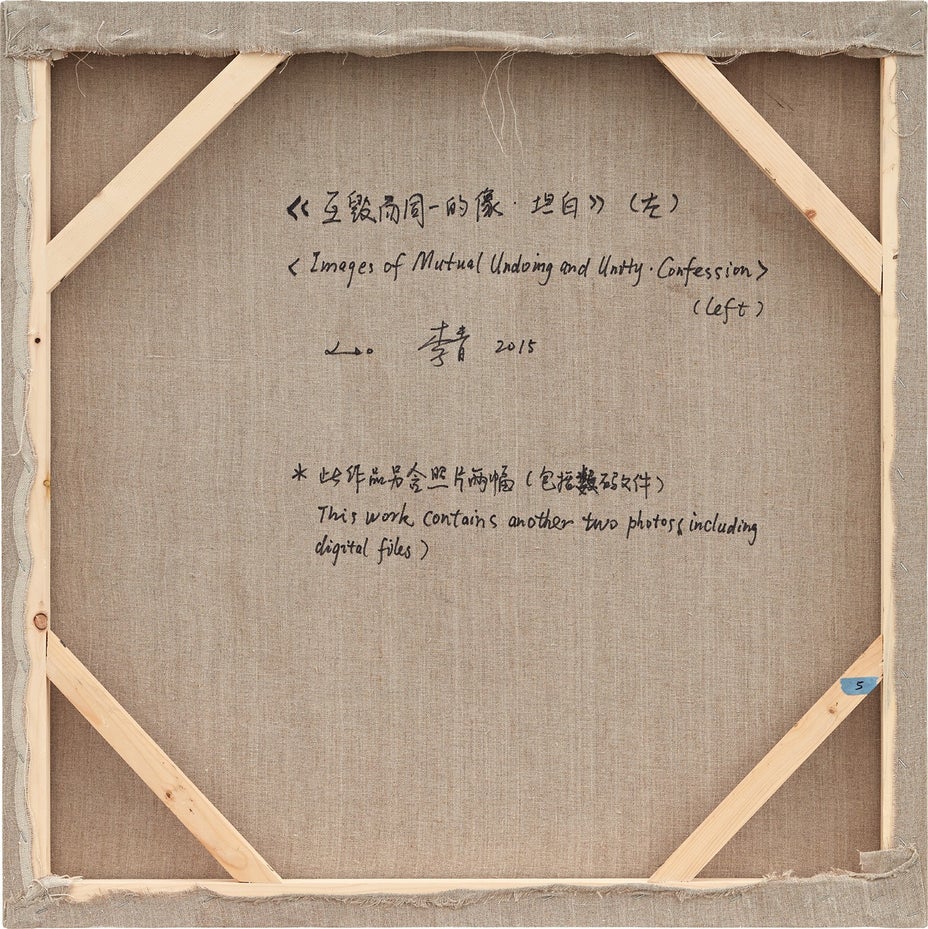 《互毁而同一的像·坦白》(左)
<Images of Mutual Undoing and Unity·Confession>
(left)
李青 2015
* 此作品另含照片两幅(包括数码文件)
This work contains another two photos(including
digital files)
5